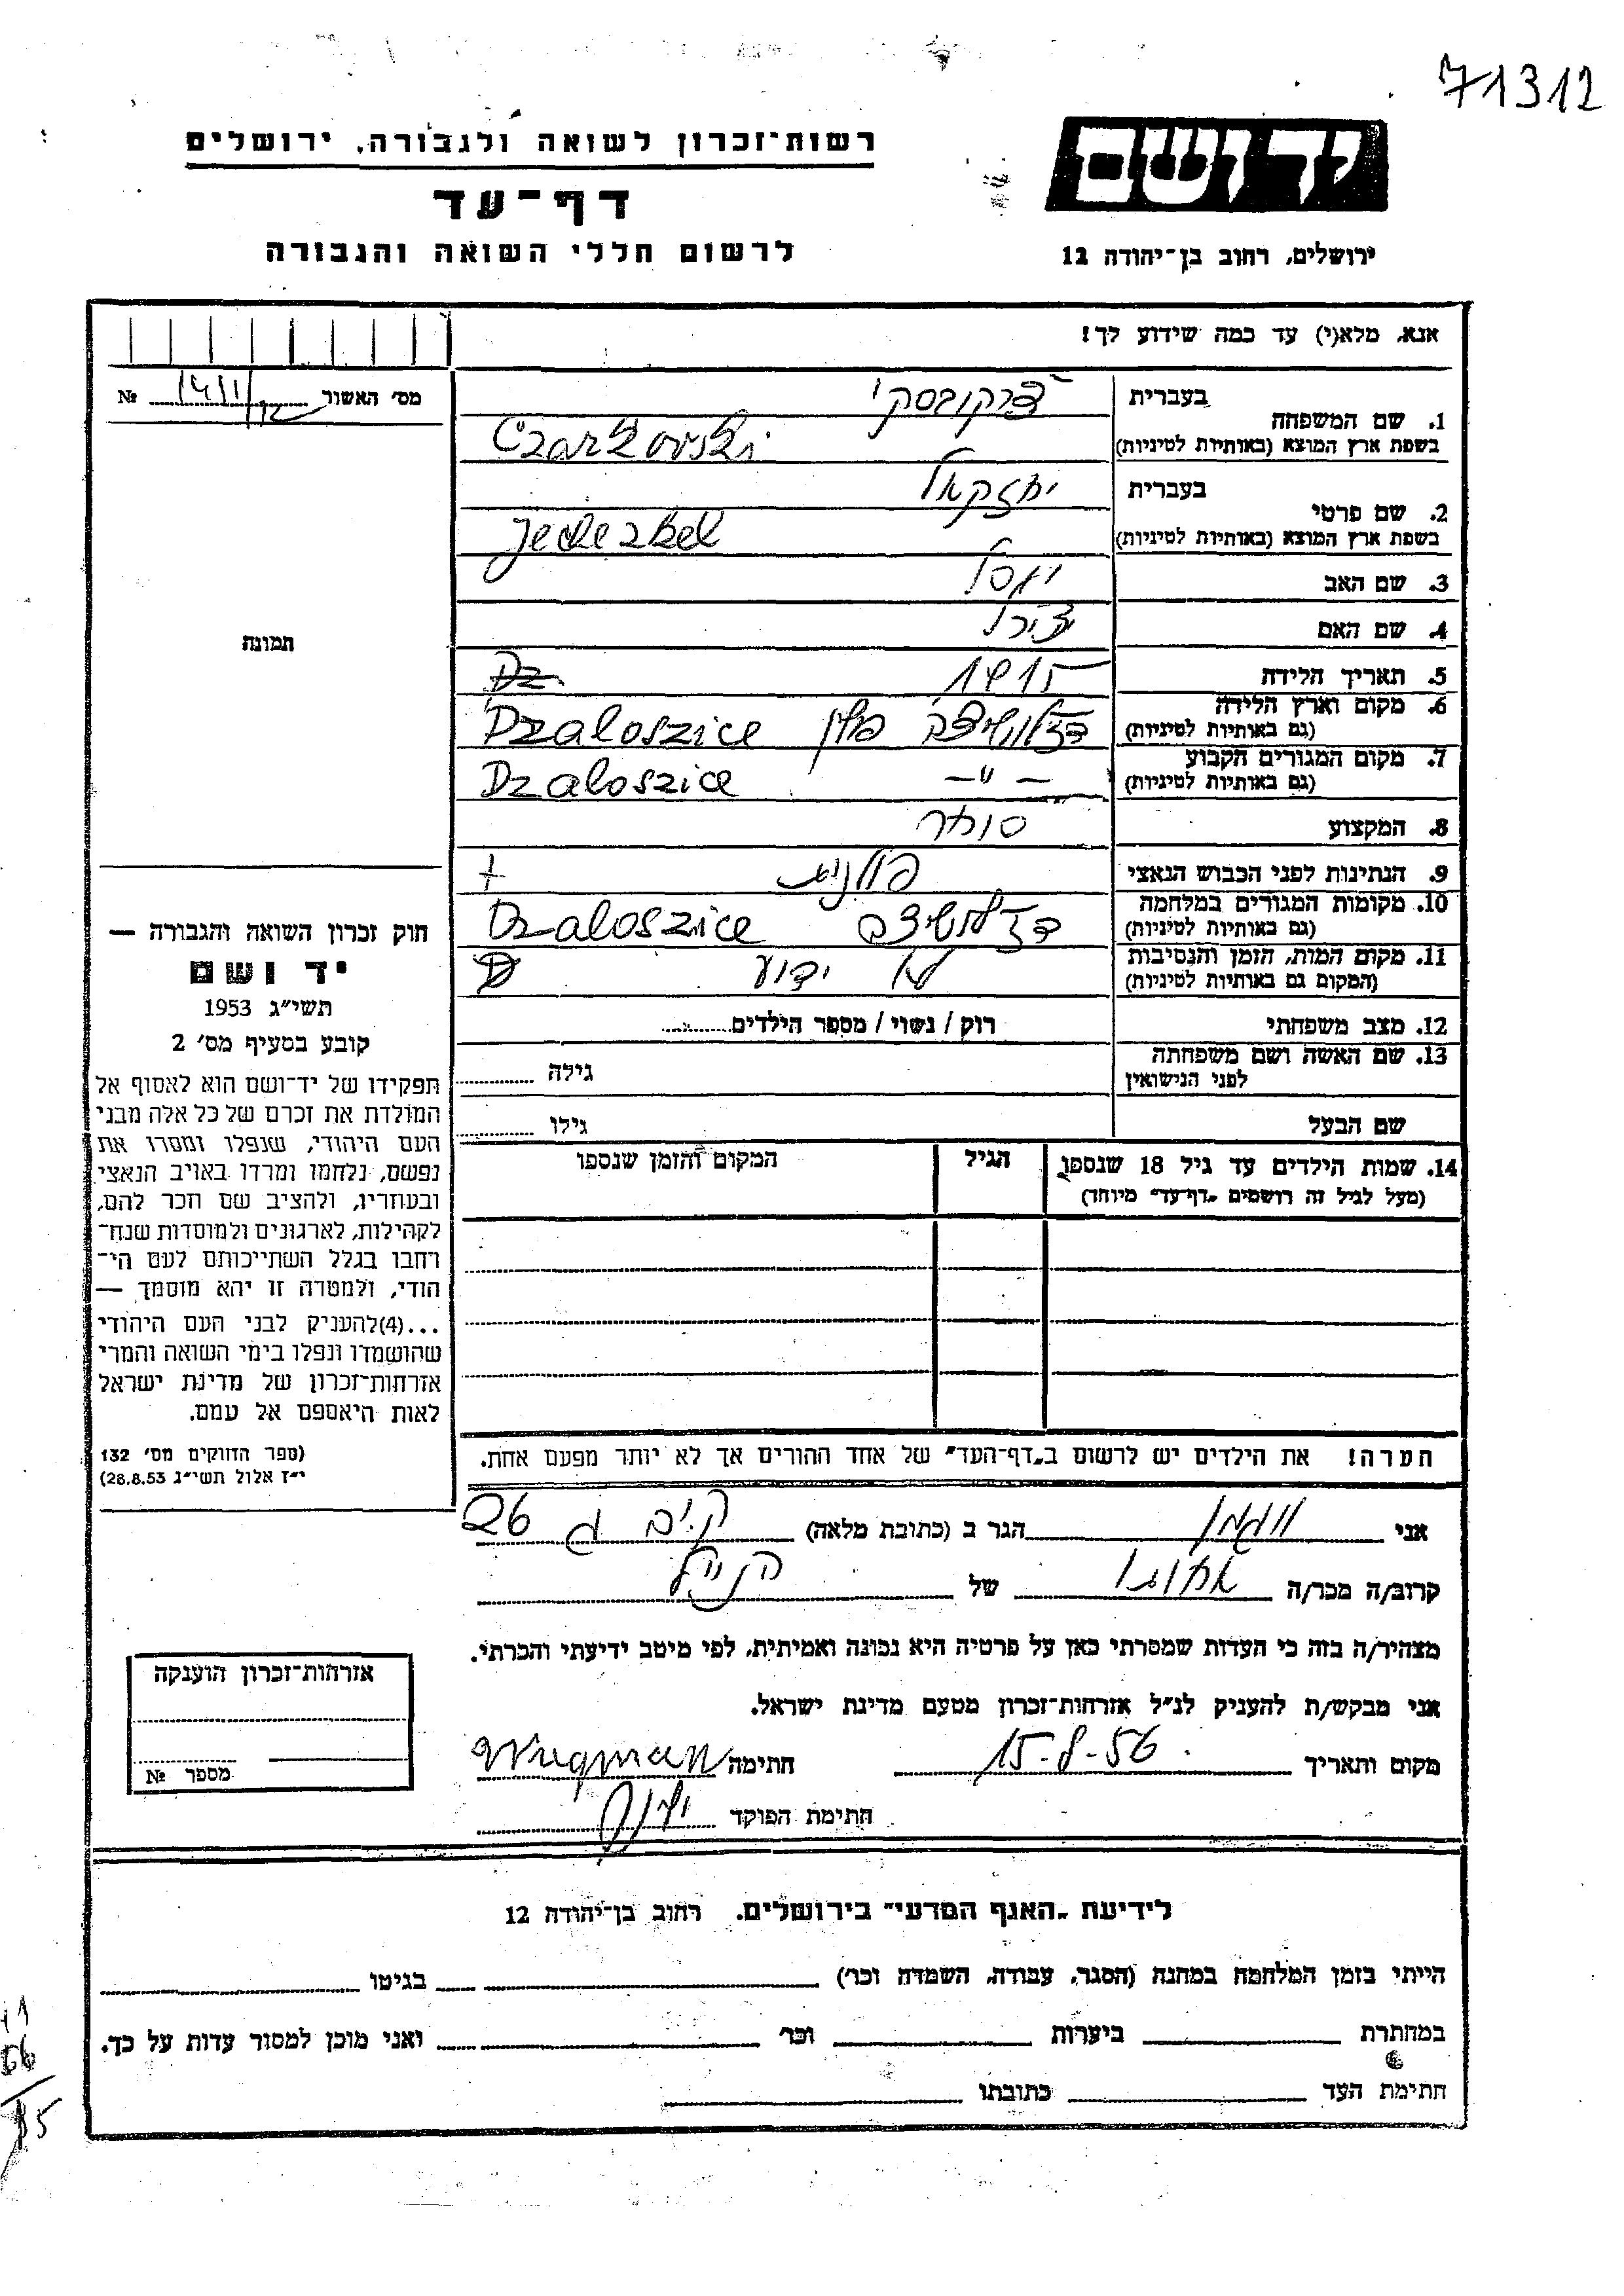 71312
רשות־זכרון לשואה ולגבורה, ירושלים
יד ושם
דף־עד
לרשום חללי השואה והגבורה
ירושלים, רחוב בן־יהודה 12
אנא, מלא(י) עד כמה שידוע לך!
מס׳ האשור №
1. שם המשפחה בעברית צ׳רקובסקי
בשפת ארץ המוצא (באותיות לטיניות) Czarkowski
2. שם פרטי בעברית יחזקאל
בשפת ארץ המוצא (באותיות לטיניות) Jechezkel
3. שם האב יוסף
4. שם האם
5. תאריך הלידה 1915 Dz
6. מקום וארץ הלידה (גם באותיות לטיניות) פולין Dzaloszice
7. מקום המגורים הקבוע (גם באותיות לטיניות) — " — Dzaloszice
8. המקצוע סוחר
9. הנתינות לפני הכבוש הנאצי פולנית
10. מקומות המגורים במלחמה (גם באותיות לטיניות) Dzaloszice
11. מקום המות, הזמן והנסיבות (המקום גם באותיות לטיניות) לא ידוע
12. מצב משפחתי רוק / נשוי / מספר הילדים
13. שם האשה ושם משפחתה לפני הנישואין גילה
שם הבעל גילו
14. שמות הילדים עד גיל 18 שנספו הגיל המקום והזמן שנספו
(מעל לגיל זה רושמים „דף־עד״ מיוחד)
תמונה
חוק זכרון השואה והגבורה —
יד ושם
תשי״ג 1953
קובע בסעיף מס׳ 2
תפקידו של יד־ושם הוא לאסוף אל
המולדת את זכרם של כל אלה מבני
העם היהודי, שנפלו ומסרו את
נפשם, נלחמו ומרדו באויב הנאצי
ובעוזריו, ולהציב שם וזכר להם,
לקהילות, לארגונים ולמוסדות שנח־
רחבו בגלל השתייכותם לעם הי־
הודי, ולמטרה זו יהא מוסמך —
...(4)להעניק לבני העם היהודי
שהושמדו ונפלו בימי השואה והמרי
אזרחות־זכרון של מדינת ישראל
לאות היאספם אל עמם.
(ספר החוקים מס׳ 132
י״ז אלול תשי״ג 28.8.53)
הערה! את הילדים יש לרשום ב„דף־העד״ של אחד ההורים אך לא יותר מפעם אחת.
אני הגר ב (כתובת מלאה) 26
קרוב/ה מכר/ה של הנ״ל
מצהיר/ה בזה כי העדות שמסרתי כאן על פרטיה היא נכונה ואמיתית, לפי מיטב ידיעתי והכרתי.
אני מבקש/ת להעניק לנ״ל אזרחות־זכרון מטעם מדינת ישראל.
מקום ותאריך 15-8-56 חתימה
חתימת הפוקד
אזרחות־זכרון הוענקה
מספר №
לידיעת „האגף המדעי״ בירושלים, רחוב בן־יהודה 12
הייתי בזמן המלחמה במחנה (הסגר, עבודה, השמדה וכו׳) בגיטו
במחתרת ביערות וכו׳ ואני מוכן למסור עדות על כך.
חתימת העד כתובתו